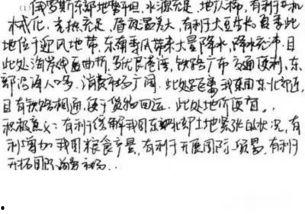 俄罗斯东部地势平坦,水源充足,地广人稀,有利于
机械化,光热充足,昼夜温差大,有利于大豆生长
地位于迎风地带,东南季风带来大量降水,降水充沛
此处海岸线曲折,多优良港湾,铁路广布,交通便利,东
部沿海人口多,消费市场广阔,此处距离我国东北部近,
且有铁路相通,便于货物回运,此处地价便宜。
积极意义:有利于缓解我国东北部土地紧张的状况,有
利增加我国粮食产量,有利于开展国际贸易,有利于
开拓国际消费市场。